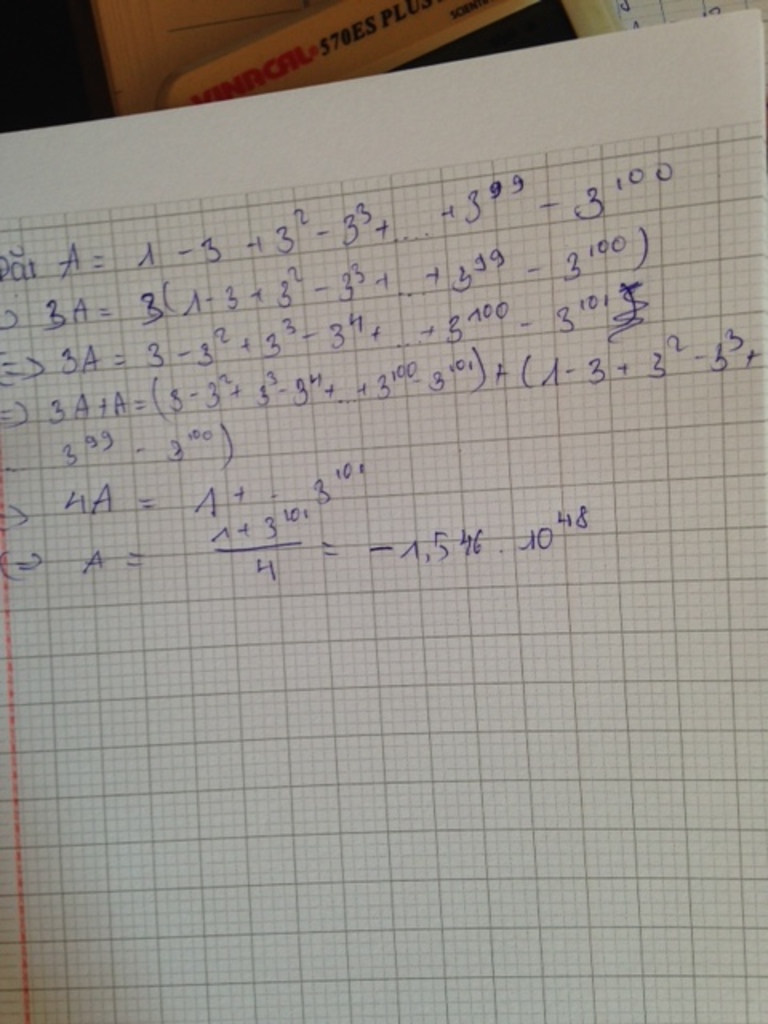 VINACAL 570ES PLUS
SCIENTIF
Đặt A = 1 - 3 + 3² - 3³ + ... + 3⁹⁹ - 3¹⁰⁰
3A = 3(1 - 3 + 3² - 3³ + ... + 3⁹⁹ - 3¹⁰⁰)
=> 3A = 3 - 3² + 3³ - 3⁴ + ... + 3¹⁰⁰ - 3¹⁰¹
=> 3A + A = (3 - 3² + 3³ - 3⁴ + ... + 3¹⁰⁰ - 3¹⁰¹) + (1 - 3 + 3² - 3³ +
3⁹⁹ - 3¹⁰⁰)
4A = 1 + - 3¹⁰¹
A = (1 + 3¹⁰¹)/4 = -1,546 . 10⁴⁸